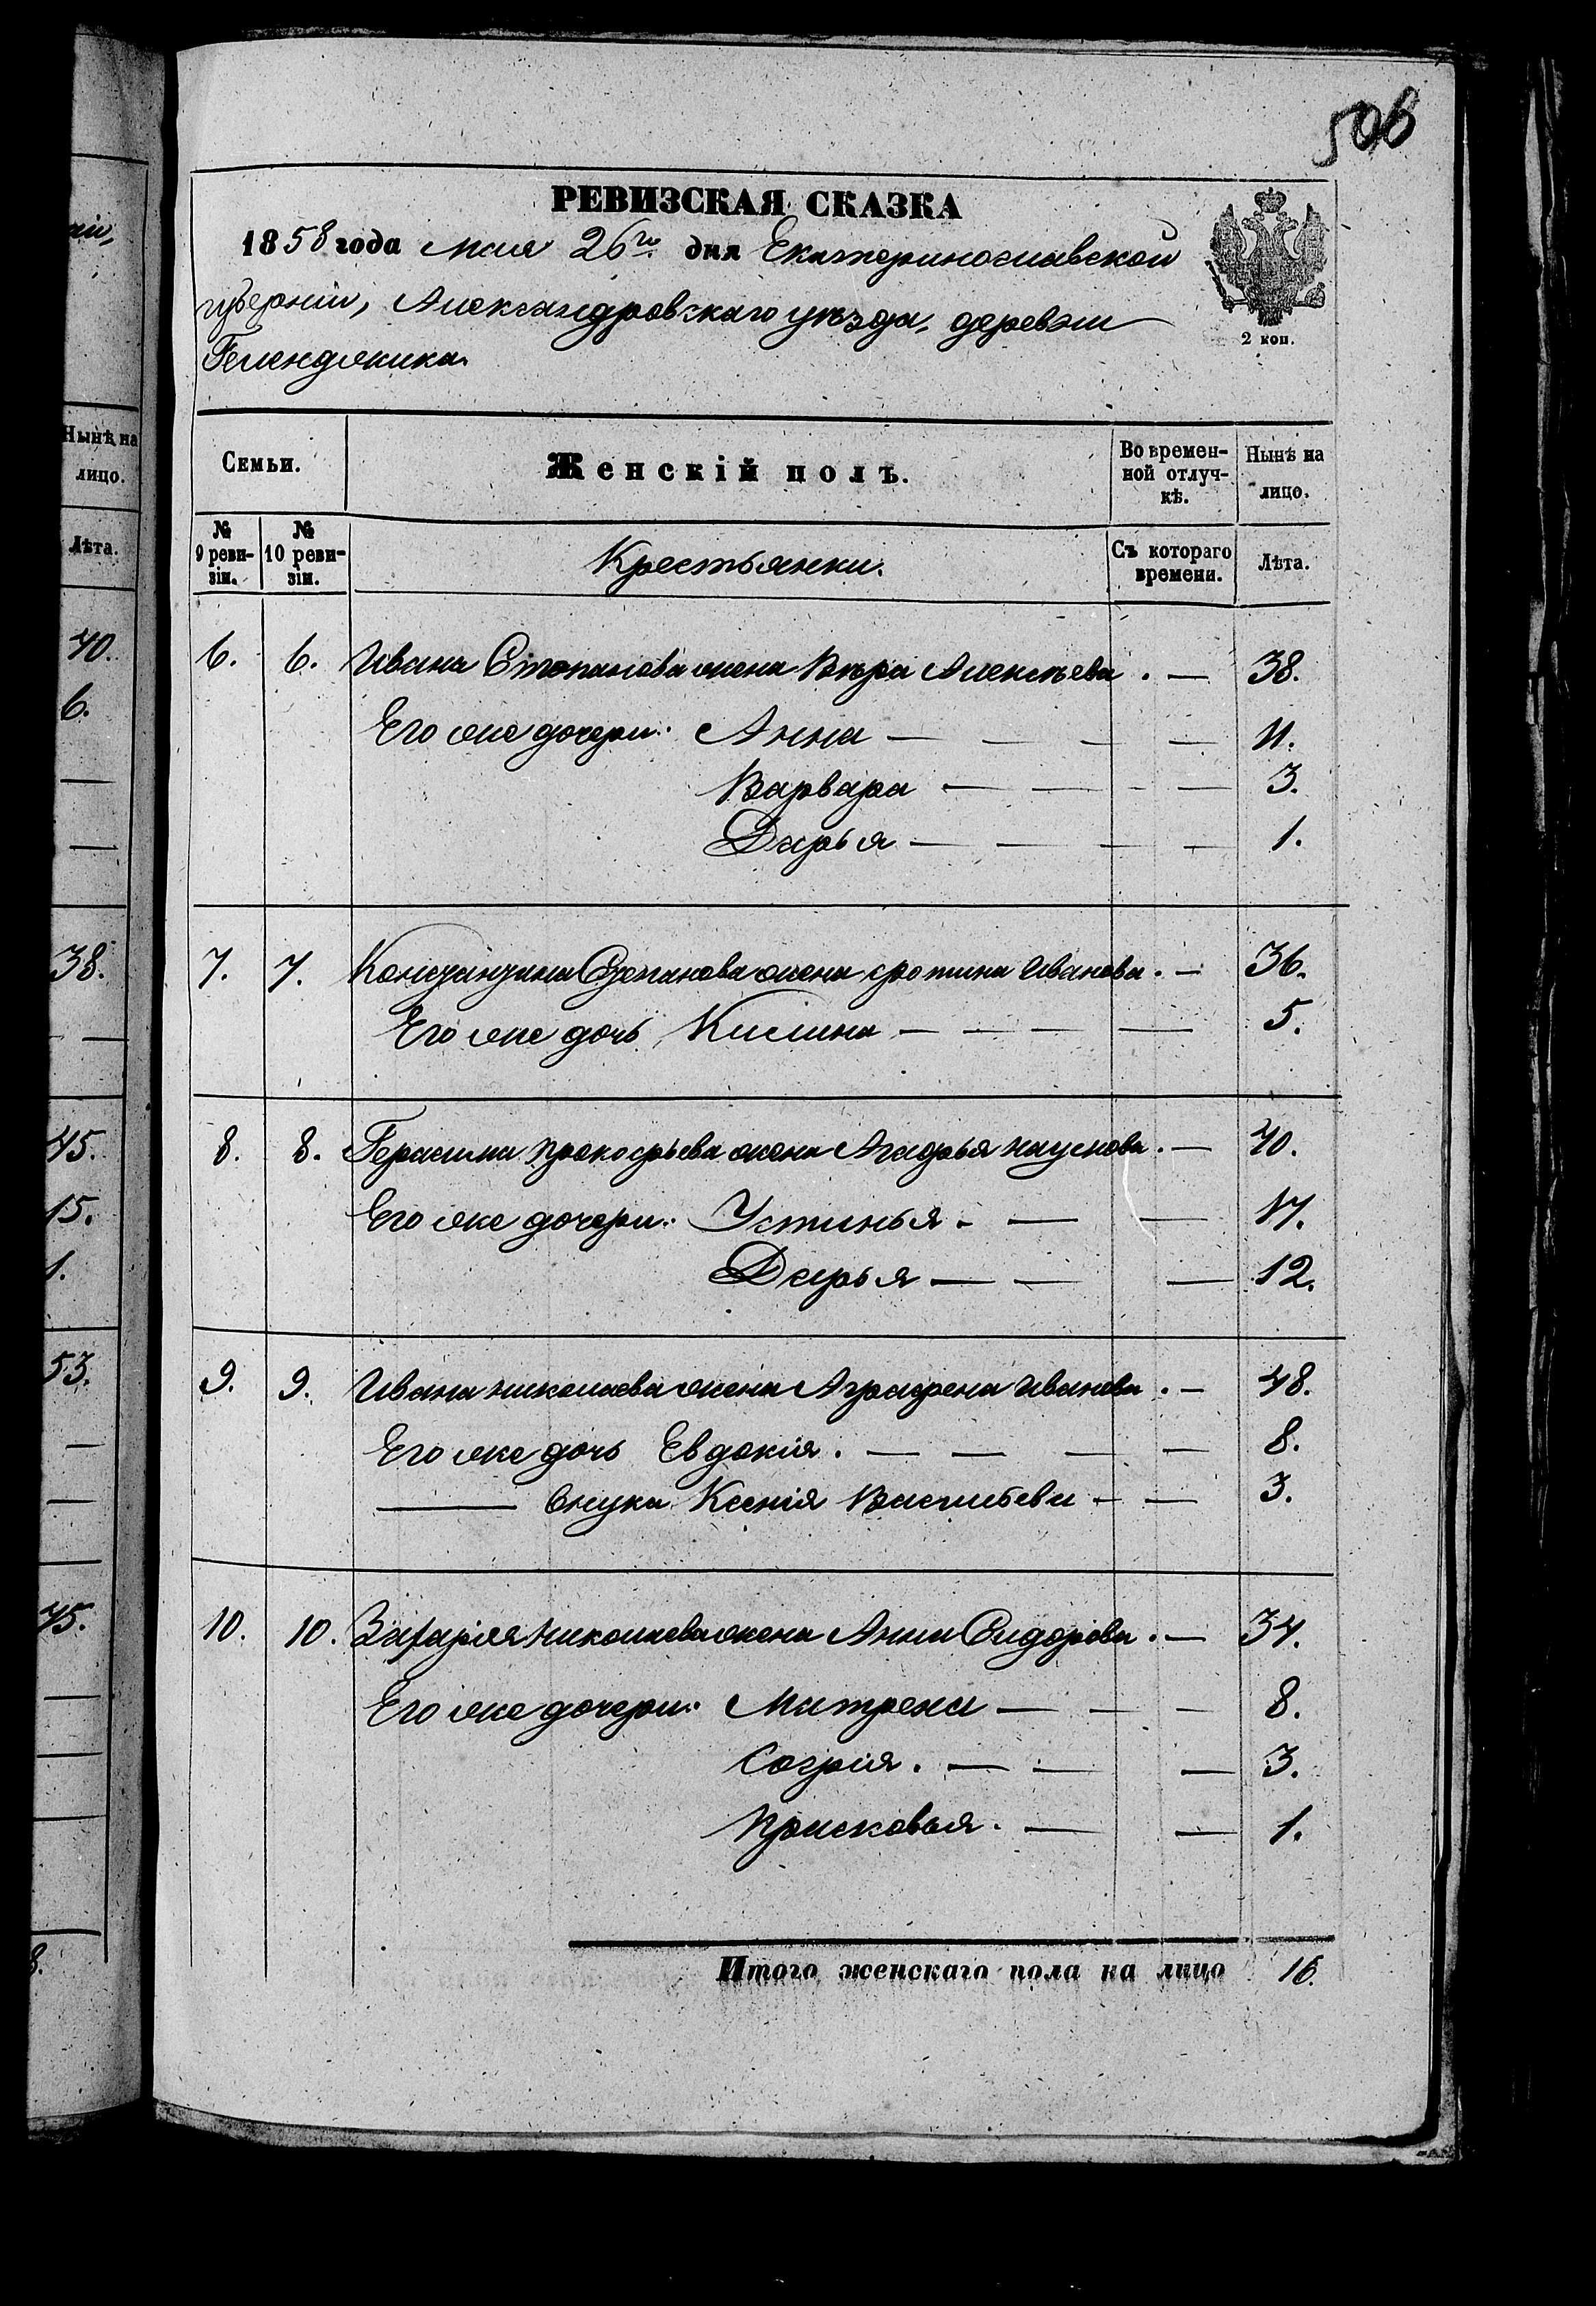 506
РЕВИЗСКАЯ СКАЗКА
1858 года мая 26го дня Екатеринославской
губерніи, Александровскаго уѣзда, деревни
Геленджика.
2 коп.
Семьи.
Женскій полъ.
Во времен-
ной отлуч-
кѣ.
Нынѣ на
лицо.
№
9 реви-
зіи.
№
10 реви-
зіи.
Крестьянки.
Съ котораго
времени.
Лѣта.
6. 6. Ивана Степанова жена Вѣра Алексѣева . — 38.
Его же дочери: Анна — — — — 11.
Варвара — — - — 3.
Дарья — — — — 1.
7. 7. Константина Степанова жена Иванова . — 36.
Его же дочь Килина — — — — 5.
8. 8. Герасима Прокофьева жена Агафья Наумова . — 40.
Его же дочери: Устинья . — — 17.
Дарья — — — 12.
9. 9. Ивана Николаева жена Аграфена Иванова . — 48.
Его же дочь Евдокія . — — — — 8.
——— внука Ксенія Васильева — — 3.
10. 10. Захарія Николаева жена Анна Сидорова . — 34.
Его же дочери: Матрена — — — 8.
Софія . — — — 3.
Прасковья . — — 1.
Итого женскаго пола на лицо 16.
ніи,
Нынѣ на
лицо.
Лѣта.
40.
6.
38.
45.
15.
1.
53.
45.
8.